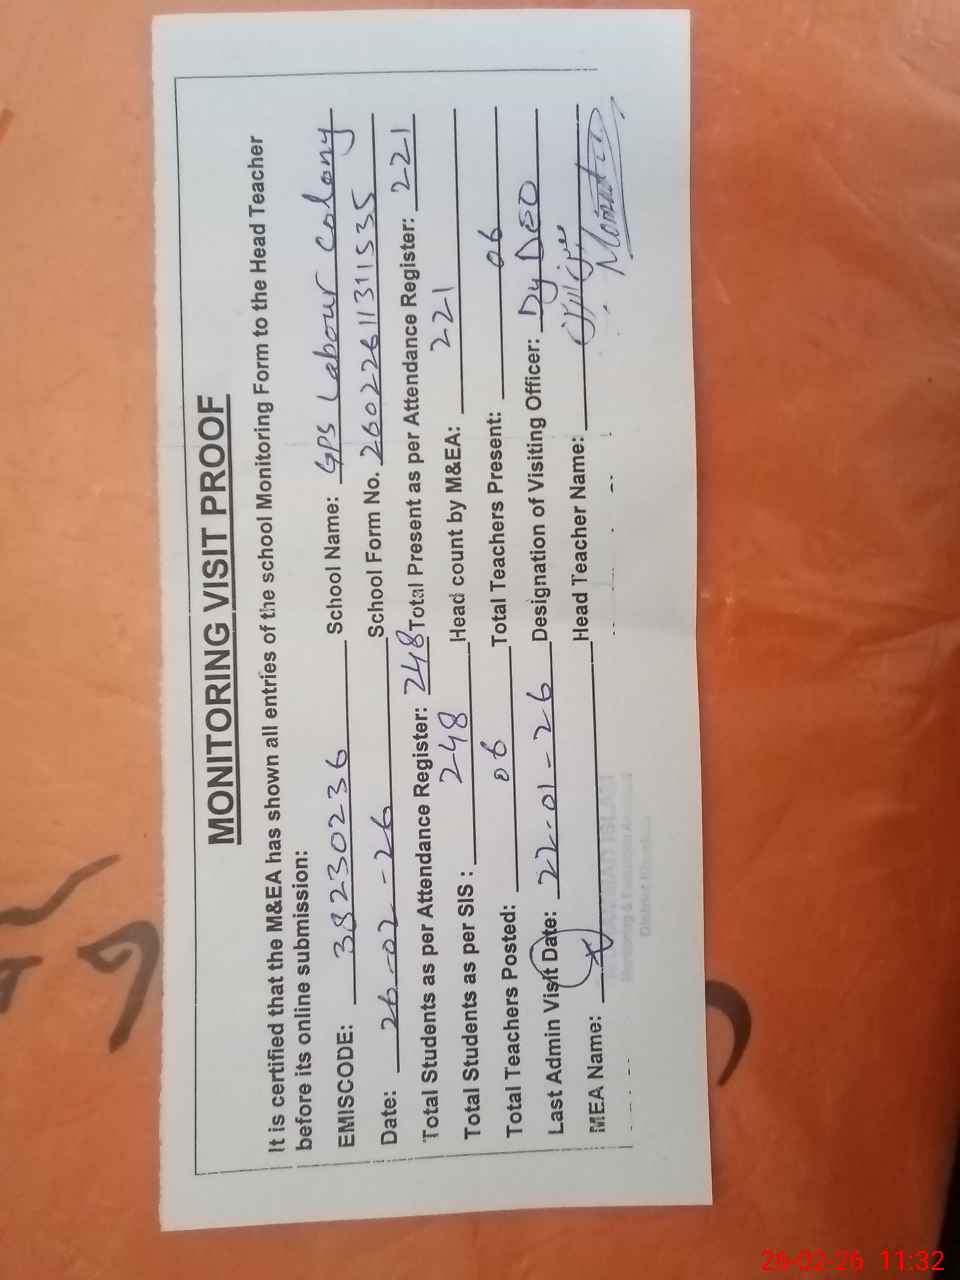 MONITORING VISIT PROOF
It is certified that the M&EA has shown all entries of the school Monitoring Form to the Head Teacher
before its online submission:
EMISCODE: 38230236 School Name: GPS Labour Colony
Date: 26-02-26 School Form No. 26022611311535
Total Students as per Attendance Register: 248 Total Present as per Attendance Register: 221
Total Students as per SIS: 248 Head count by M&EA: 221
Total Teachers Posted: 06 Total Teachers Present: 06
Last Admin Visit Date: 22-01-26 Designation of Visiting Officer: Dy DEO
MEA Name: Head Teacher Name:
Monitoring & Evaluation
District
26-02-26 11:32